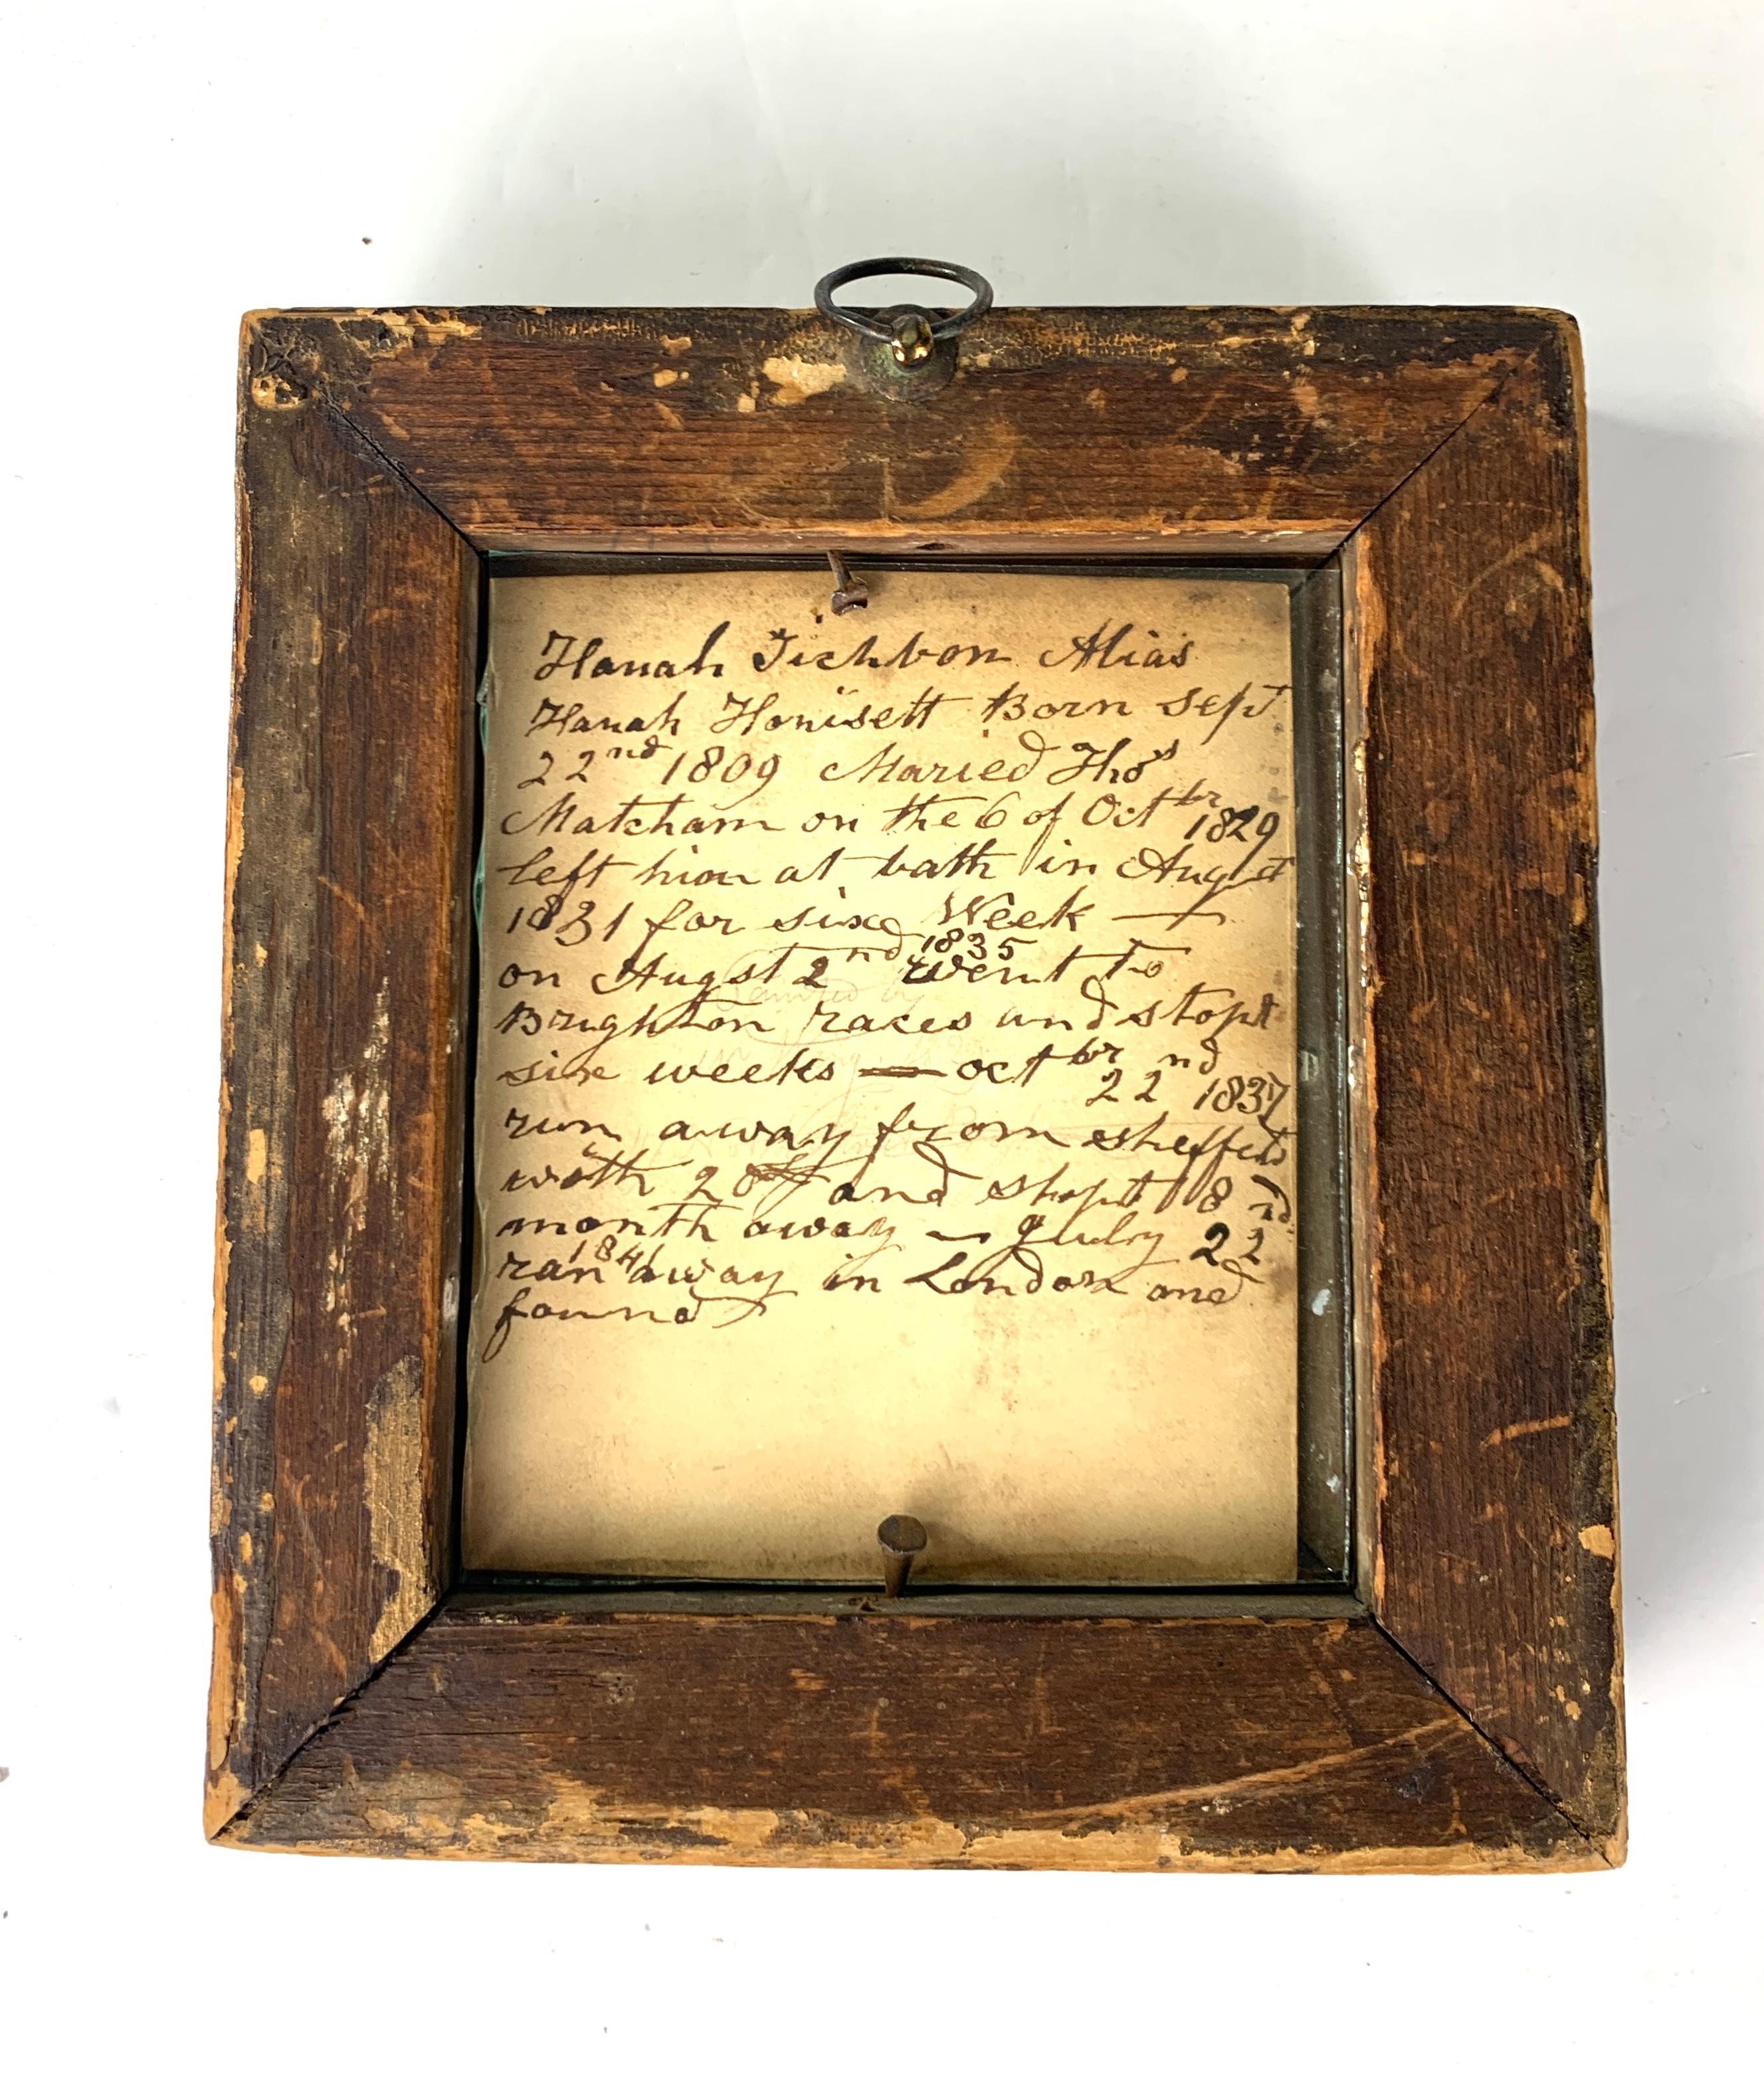 Hanah Tichbon Alias
Hanah Honisett Born Sept
22nd 1809 Maried Thos
Matcham on the 6 of Octbr 1829
left him at bath in Augst
1831 for sixe Week —
on Augst 2nd 1835 went to
Brighton races and stopt
six weeks — octbr 22nd 1837
run away from sheffeld
with 20 and stopt 18
month away — July 22nd
1841 ran away in London and
found